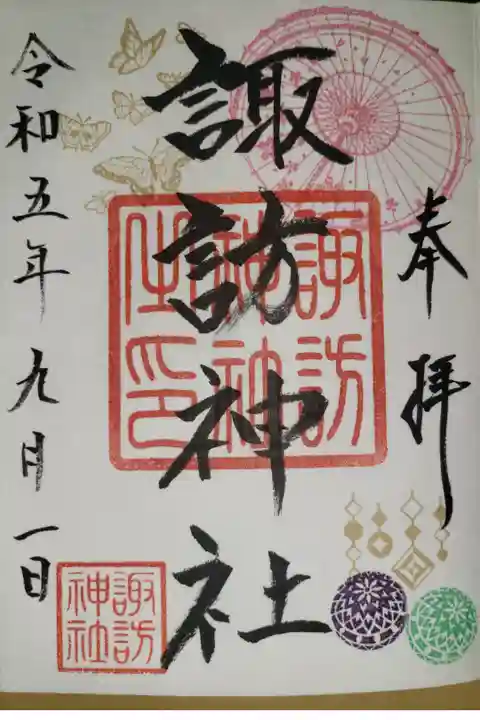 奉拝
諏訪神社
令和五年九月一日
諏訪
神社
之印
諏訪
神社